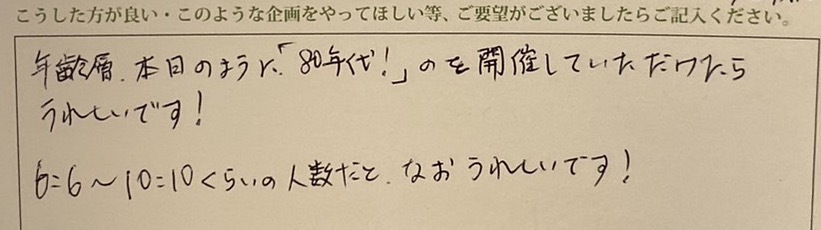 こうした方が良い・このような企画をやってほしい等、ご要望がございましたらご記入ください。
年齢層、本日のように、「80年代!」のを開催していただけたら
うれしいです!
6=6〜10=10くらいの人数だと、なおうれしいです!